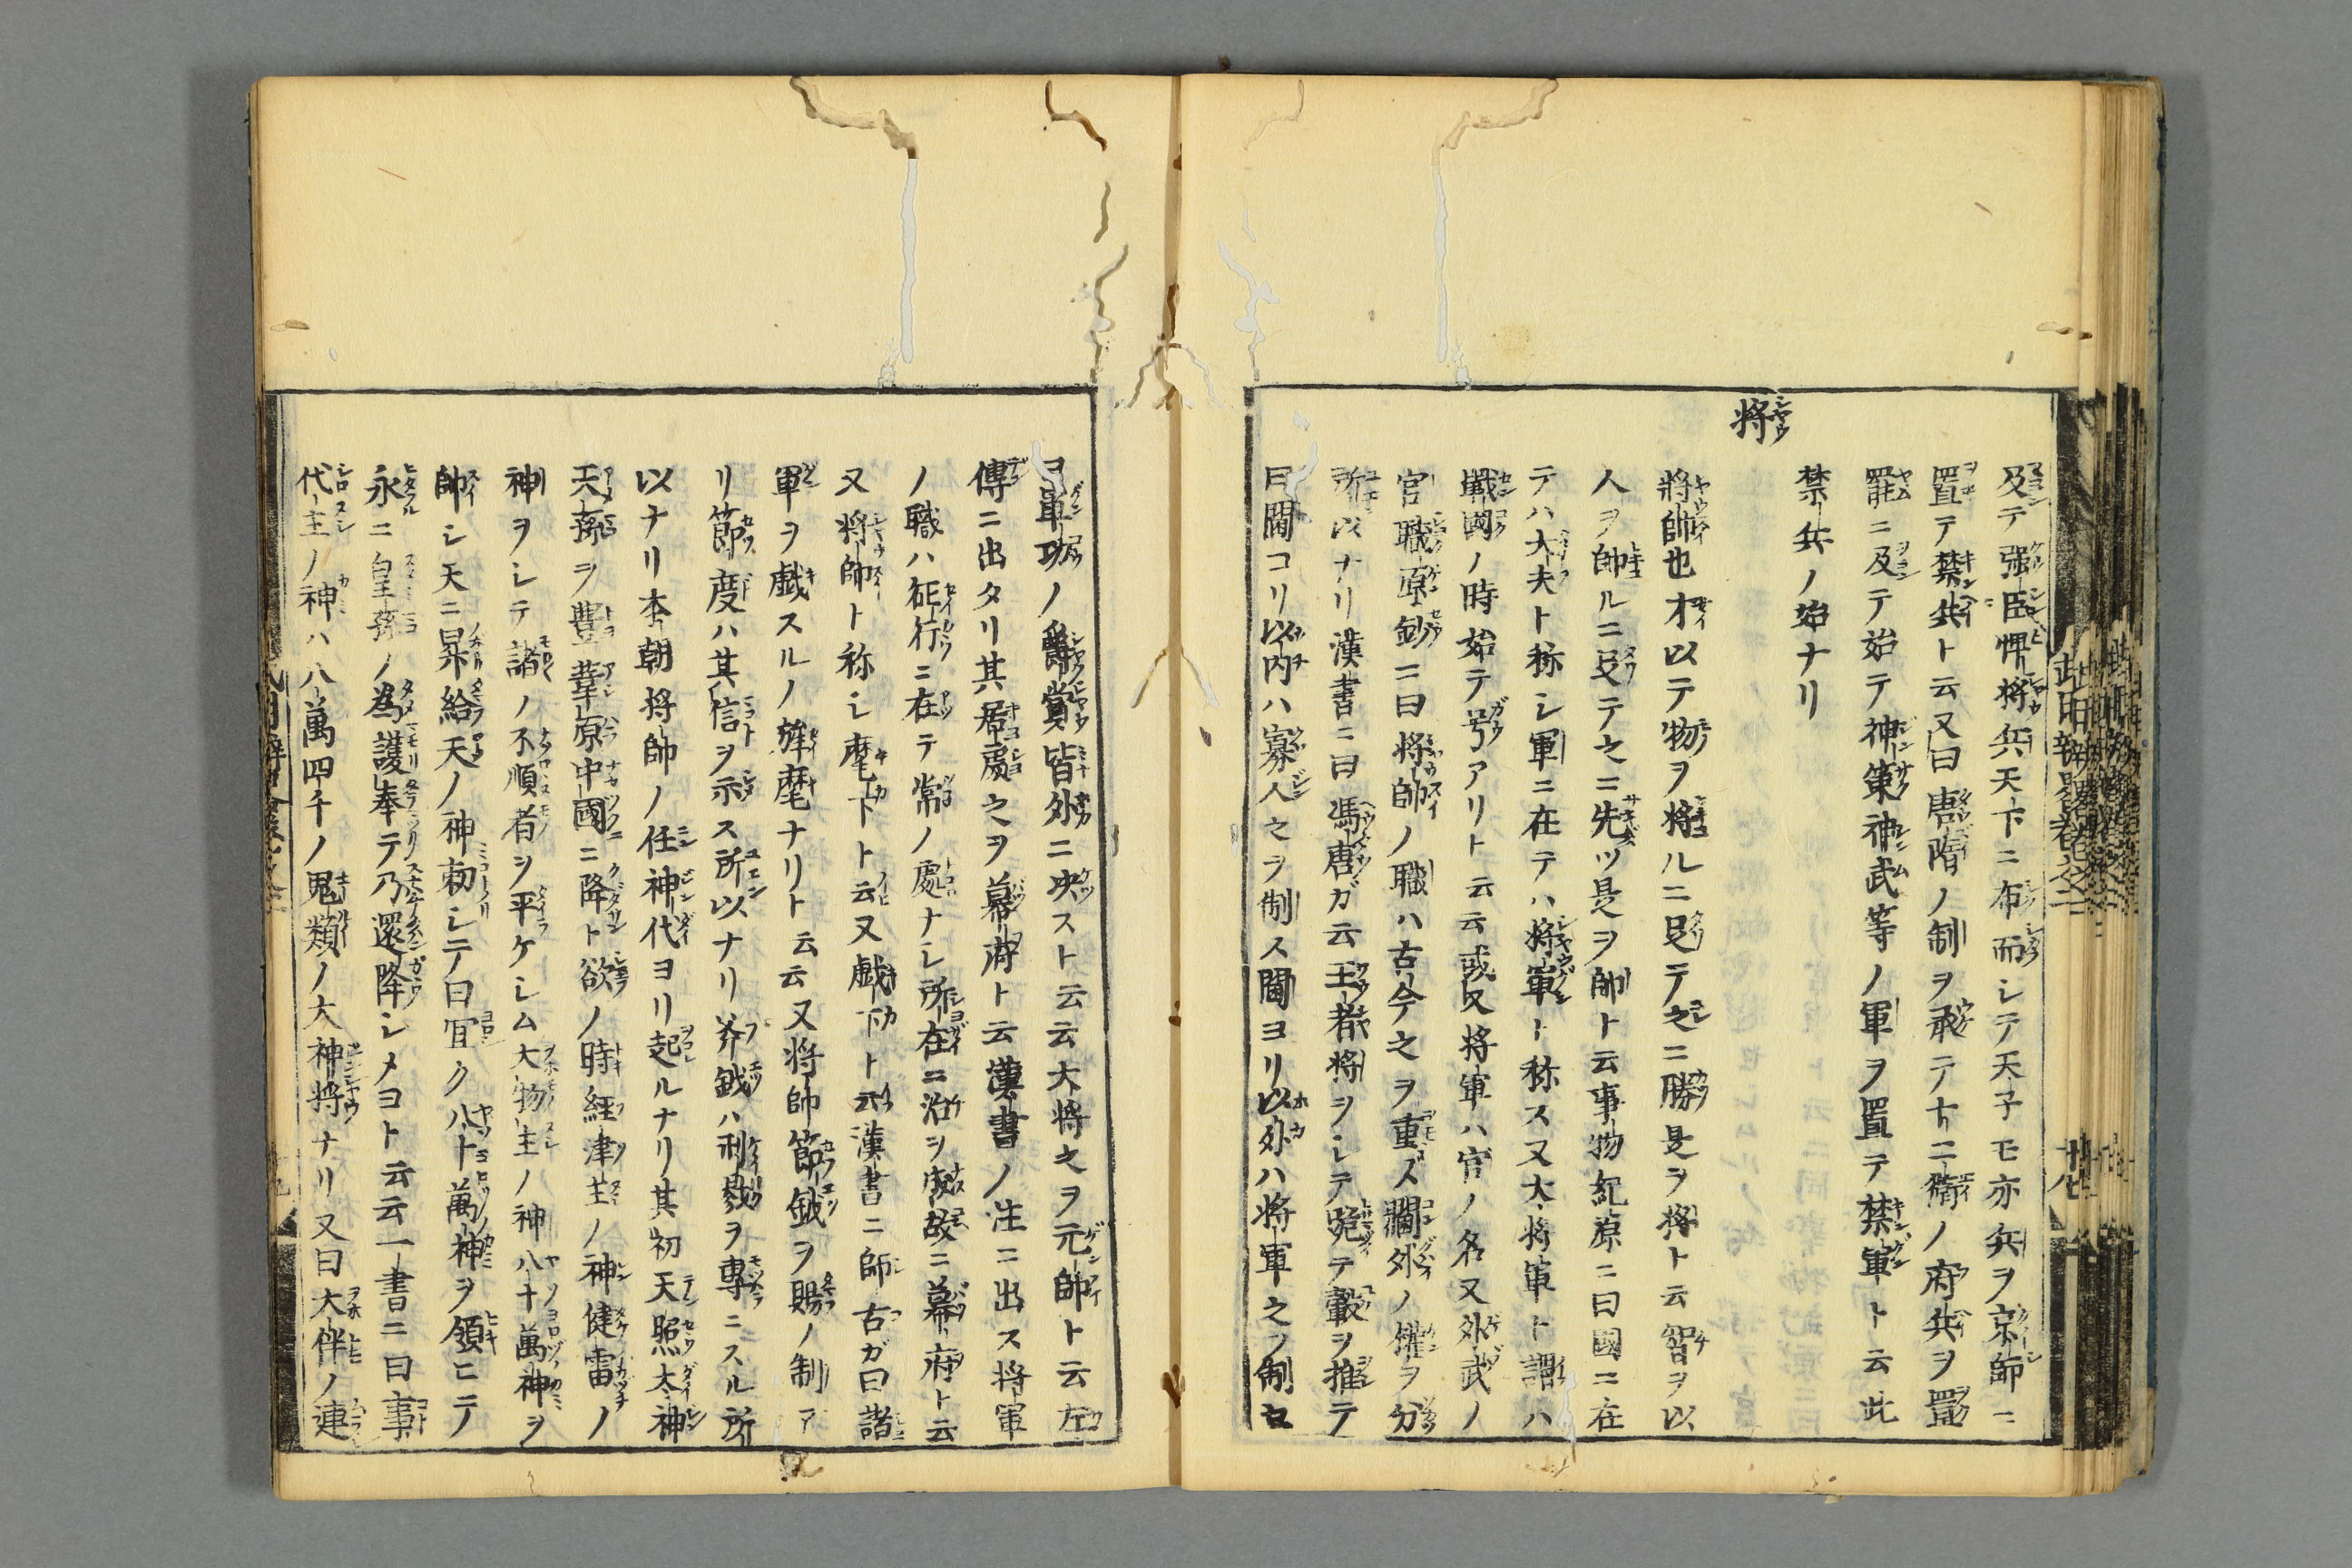 及テ強臣悍将兵天下ニ布而シテ天子モ亦兵ヲ京師ニ
置テ禁兵ト云又曰唐隋ノ制ヲ承テ十二衛ノ府兵ヲ置
罷ニ及テ始テ神策神武等ノ軍ヲ置テ禁軍ト云此
禁兵ノ始ナリ
将
將帥也才以テ物ヲ将ルニ足テ之ニ勝是ヲ将ト云智ヲ以
人ヲ帥ルニ足テ之ニ先ツ是ヲ帥ト云事物紀原ニ曰國ニ在
テハ大夫ト称シ軍ニ在テハ将軍ト称ス又大将軍ト謂ハ
戰國ノ時始テ号アリト云云或又将軍ハ官ノ名又外武ノ
官職原鈔ニ曰将帥ノ職ハ古今之ヲ重ズ閫外ノ権ヲ分
所以ナリ漢書ニ曰馮唐ガ云王者将ヲシテ跪テ轂ヲ推テ
曰閫ヨリ以内ハ寡人之ヲ制ス閫ヨリ以外ハ将軍之ヲ制セ
ヨ軍功ノ爵賞皆外ニ決スト云云大将之ヲ元帥ト云左
傳ニ出タリ其居處之ヲ幕府ト云漢書ノ注ニ出ス将軍
ノ職ハ征行ニ在テ常ノ處ナシ所在ニ治ヲ成故ニ幕府ト云
又将帥ト称シ麾下ト云又戯下ト云漢書ニ師古ガ曰諸
軍ヲ戯スルノ旌麾ナリト云云又将帥節鉞ヲ賜ノ制ア
リ節度ハ其信ヲ示ス所以ナリ斧鉞ハ刑戮ヲ専ニスル所
以ナリ本朝将帥ノ任神代ヨリ起ルナリ其初天照太神
天孫ヲ豊葦原中國ニ降ト欲ノ時経津主ノ神健雷ノ
神ヲシテ諸ノ不順者ヲ平ケシム大物主ノ神八十萬神ヲ
帥シ天ニ昇給天ノ神勅シテ曰宜ク八十萬神ヲ領ヒテ
永ニ皇孫ノ為護奉テ乃還降シメヨト云云一書ニ曰事
代主ノ神ハ八萬四千ノ鬼類ノ大神将ナリ又曰大伴ノ連